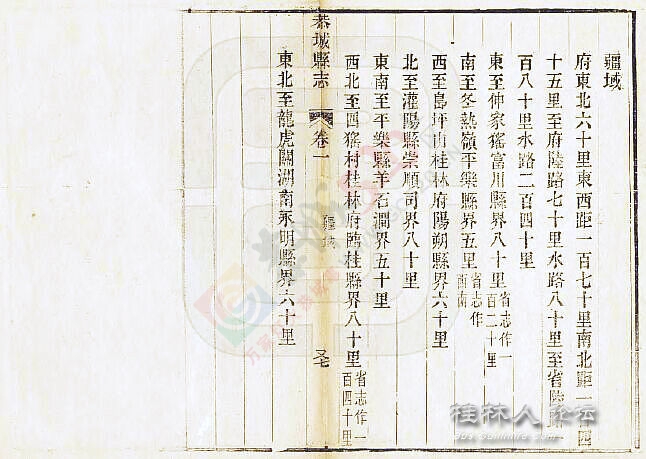 疆域
府東北六十里東西距一百七十里南北距一百四
十五里至府陸路七十里水路八十里至省陸路
百八十里水路二百四十里
東至仲家猺富川縣界八十里省志作一百二十里
南至冬熱嶺平樂縣界五里省志作西南
西至島坪由桂林府陽朔縣界六十里
北至灌陽縣崇順司界八十里
東南至平樂縣羊石澗界五十里
西北至四猺村桂林府臨桂縣界八十里省志作一百四十里
東北至龍虎關湖南永明縣界六十里
恭城縣志
卷一
疆域
又七
桂林人论坛